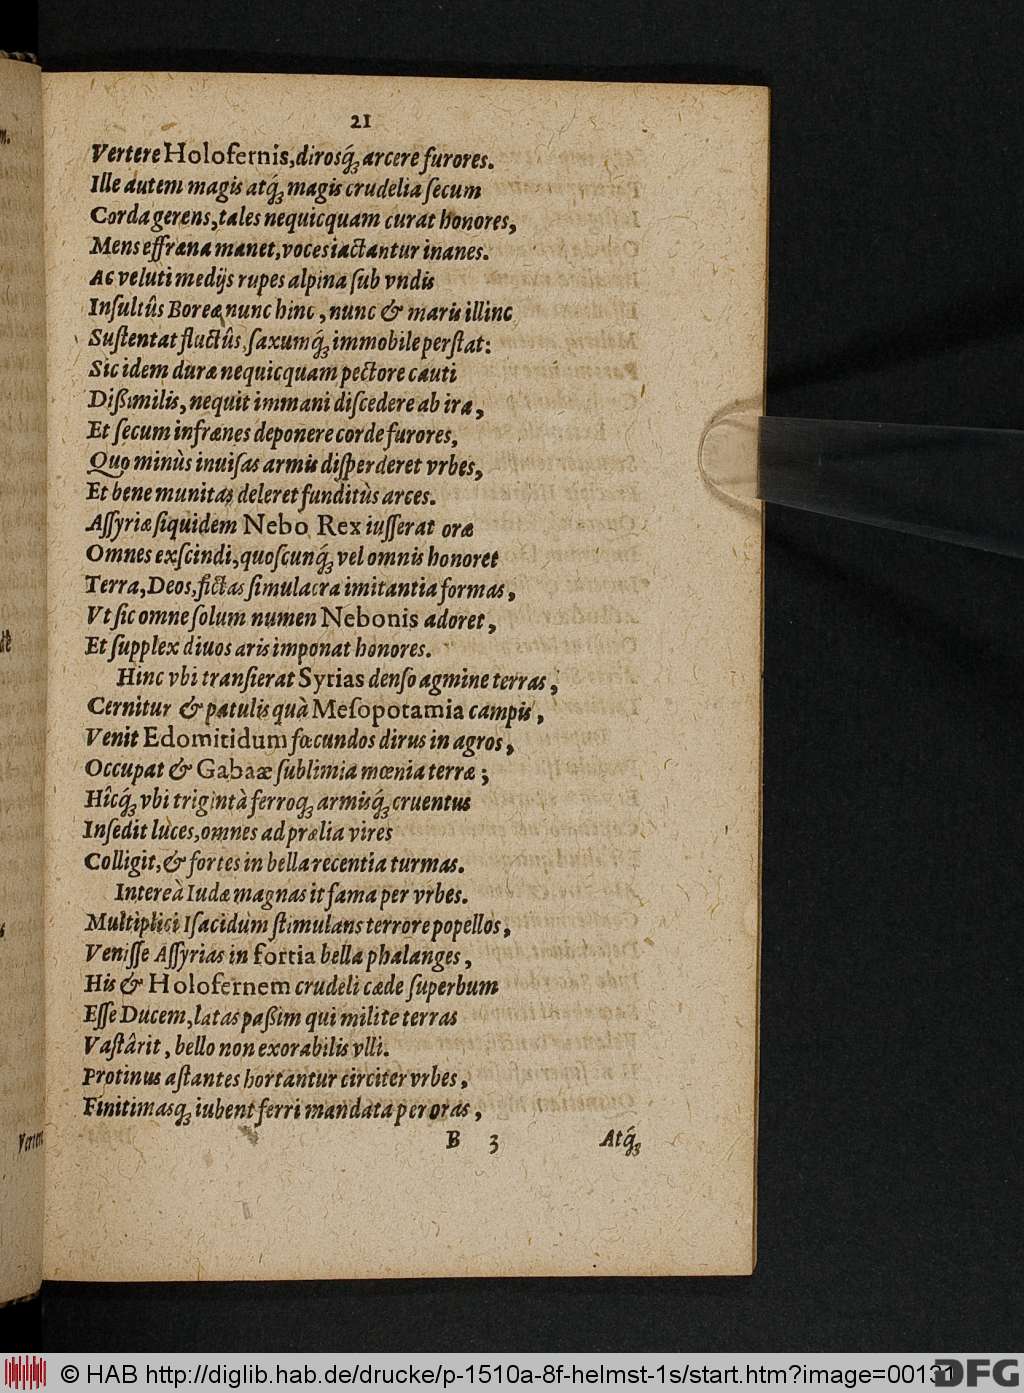 21
Vertere Holofernis, dirosq́ꝫ arcere furores.
Ille autem magis atq́ꝫ magis crudelia ſecum
Corda gerens, tales nequicquam curat honores,
Mens effræna manet, voces iactantur inanes.
Ac veluti medijs rupes alpina ſub vndis
Inſultûs Boreæ nunc hinc, nunc & maris illinc
Suſtentat fluctûs, ſaxumq́ꝫ immobile perſtat:
Sic idem duræ nequicquam pectore cauti
Dißimilis, nequit immani diſcedere ab ira,
Et ſecum infrænes deponere corde furores,
Quo minùs inuiſas armis diſperderet vrbes,
Et bene munitas deleret funditùs arces.
Aſſyriæ ſiquidem Nebo Rex iuſſerat oræ
Omnes exſcindi, quoſcunq́ꝫ vel omnis honoret
Terra, Deos, fictas ſimulacra imitantia formas,
Vt ſic omne ſolum numen Nebonis adoret,
Et ſupplex diuos aris imponat honores.
Hinc vbi tranſierat Syrias denſo agmine terras,
Cernitur & patulis quà Meſopotamia campis,
Venit Edomitidum fœcundos dirus in agros,
Occupat & Gabaæ ſublimia mœnia terræ;
Hîcq́ꝫ vbi trigintà ferroqꝫ armisq́ꝫ cruentus
Inſedit luces, omnes ad prælia vires
Colligit, & fortes in bella recentia turmas.
Intereà Iudæ magnas it fama per vrbes.
Multiplici Iſacidum ſtimulans terrore popellos,
Veniſſe Aſſyrias in fortia bella phalanges,
His & Holofernem crudeli cæde ſuperbum
Eſſe Ducem, latas paßim qui milite terras
Vaſtârit, bello non exorabilis vlli.
Protinus aſtantes hortantur circiter vrbes,
Finitimasqꝫ iubent ferri mandata per oras,
B 3 Atq́ꝫ
© HAB http://diglib.hab.de/drucke/p-1510a-8f-helmst-1s/start.htm?image=00131
DFG